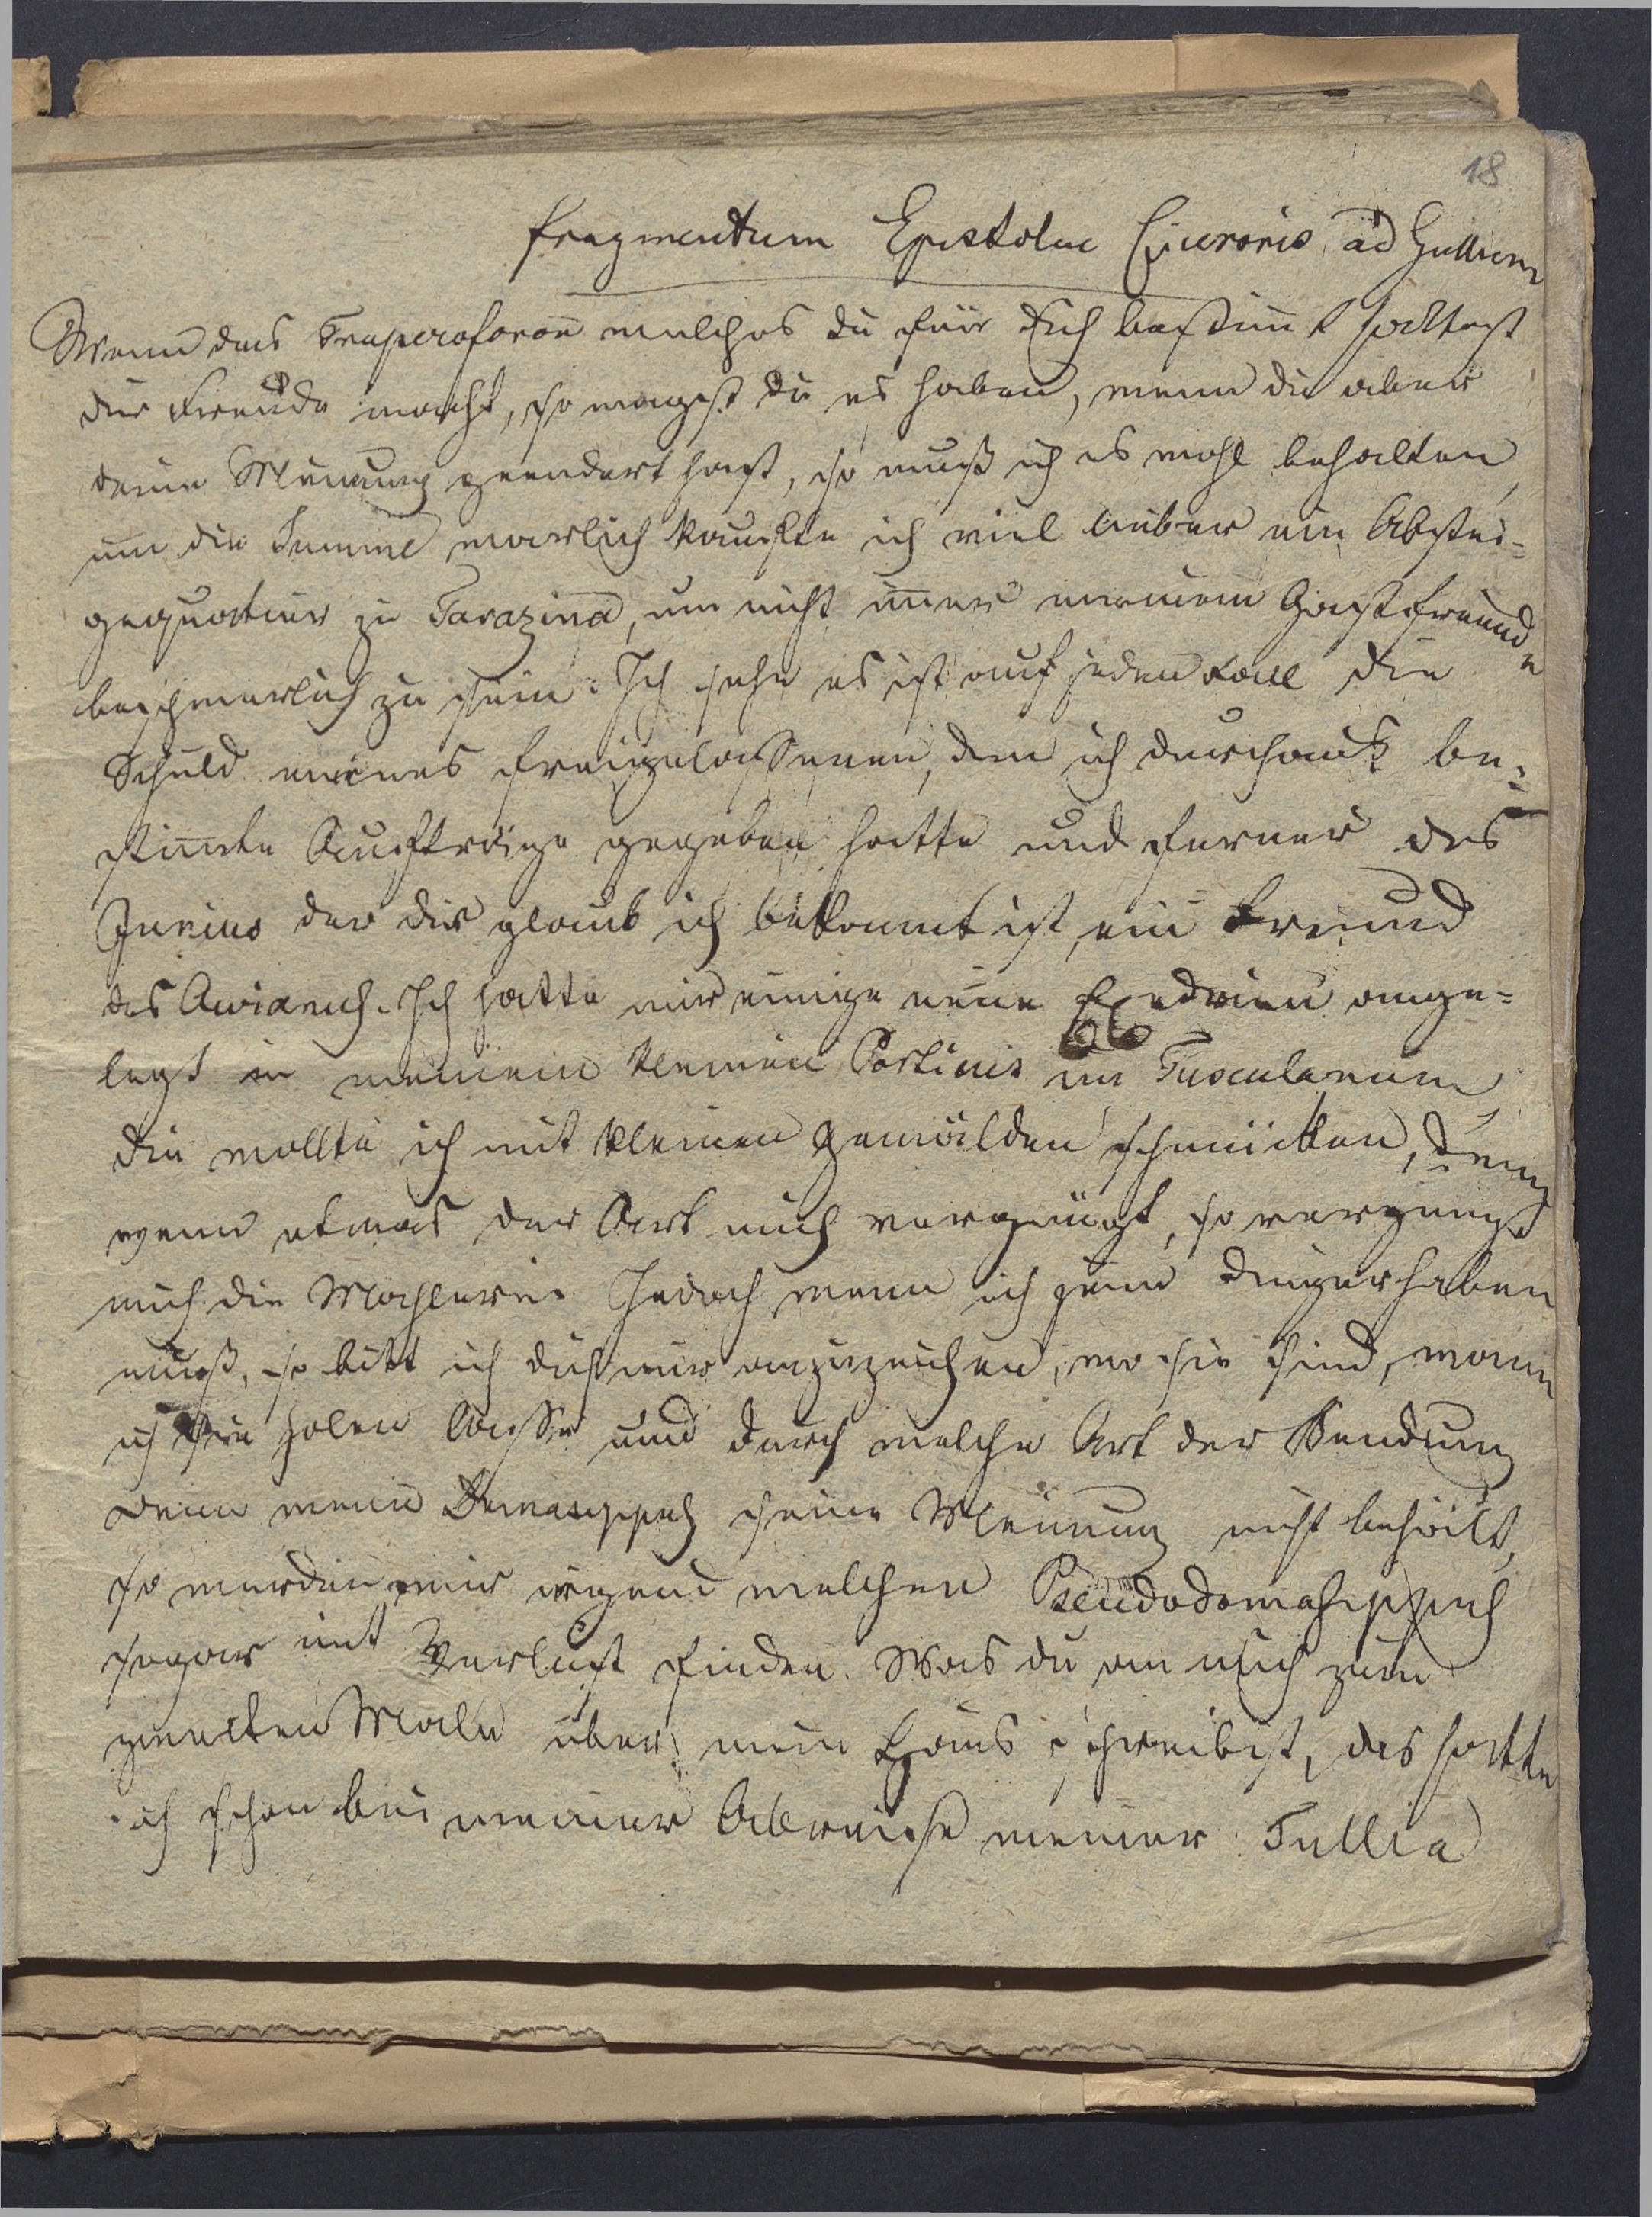 18
fragmentum Epistolae Ciceronis ad Gallium
Wenn das Trapezoforon welches du für dich bestim̅t hattest
dir Freude macht, so magst du es haben, wenn du aber
deine Meinung geendert hast, so muß ich es wohl behalten
um die Summe warlich kaufte ich viel lieber ein Abstei-
gequartier zu Tarazina, um nicht im̅er meinem Gastfreunde
beschwerlich zu sein. Ich sehe es ist auf jeden Fall die
Schuld meines freigelassenen, dem ich durchaus be-
stim̅te Aufträge gegeben hatte und ferner des
Junius der dir glaub ich bekannt ist, ein Freund
des Avianus. Ich hatte mir einige neue Exedrien ange-
legt in meinem kleinen Porticus im Tusculanum
die wollte ich mit kleinen Gemälden schmücken, denn
wenn etwas der Art mich vergnügt, so vergnügt
mich die Mahlerei. Jedoch wenn ich jene Dinger haben
muß, so bitt ich dich mir anzuzeichen, wo sie sind, wann
ich sie holen lasse und durch welche Art der Sendung
denn wenn Damasippus seine Meinung nicht behält,
so werden wir irgend welchen Pseudodamasippus
sogar mit Verlust finden. Was du an mich zum
zweiten Male über mein Haus schreibst, das hatte
ich schon bei meiner Abreise meiner Tullia